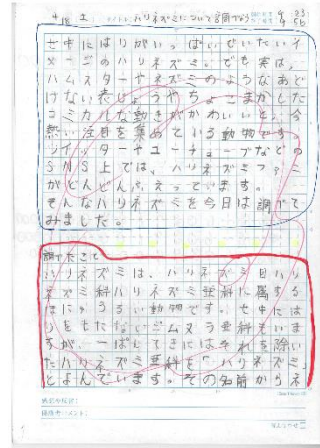 4/18 土 ハリネズミについて調べよう
せ中にはりがいっぱいせいたいイ
メージのハリネズミ。でも実は、
ハムスターやネズミのようなあど
けない表じょうやちょこまかした
コミカルな動きがかわいいと、今
熱い注目を集めている動物です。
ツイッターやユーチューブなどの
SNS上では、ハリネズミファン
がどんどんふえっています。
そんなハリネズミを今日は調べて
みました。
調べたこと
ハリネズミは、ハリネズミ目ハリ
ネズミ科ハリネズミ亜科に属する
ほにゅうるい動物です。せ中には
りをもたないジムヌラ亜科もいま
すが、一ぱんてきにはそれを除い
たハリネズミ亜科を「ハリネズミ」
とよんでいます。その名前からネ